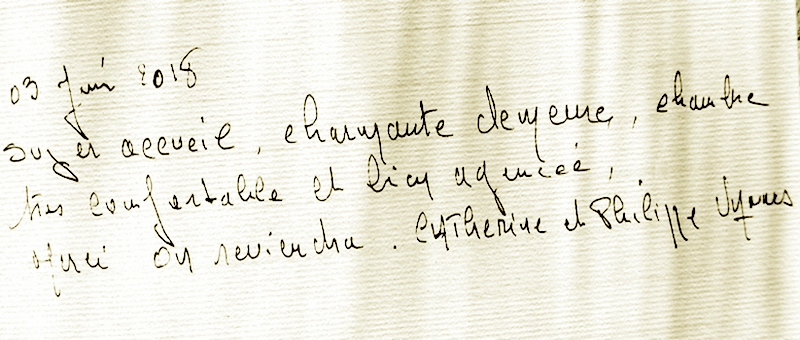 03 Juin 2018
Super accueil, charmante demeure, chambre
très confortable et bien agencée,
Merci on reviendra. Catherine et Philippe